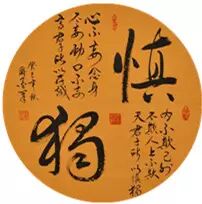 慎
内不欺己外
不欺人上不欺
天君子所以慎獨
心不妄念身
不妄動口不妄
言君子所以存誠
獨
癸巳年秋